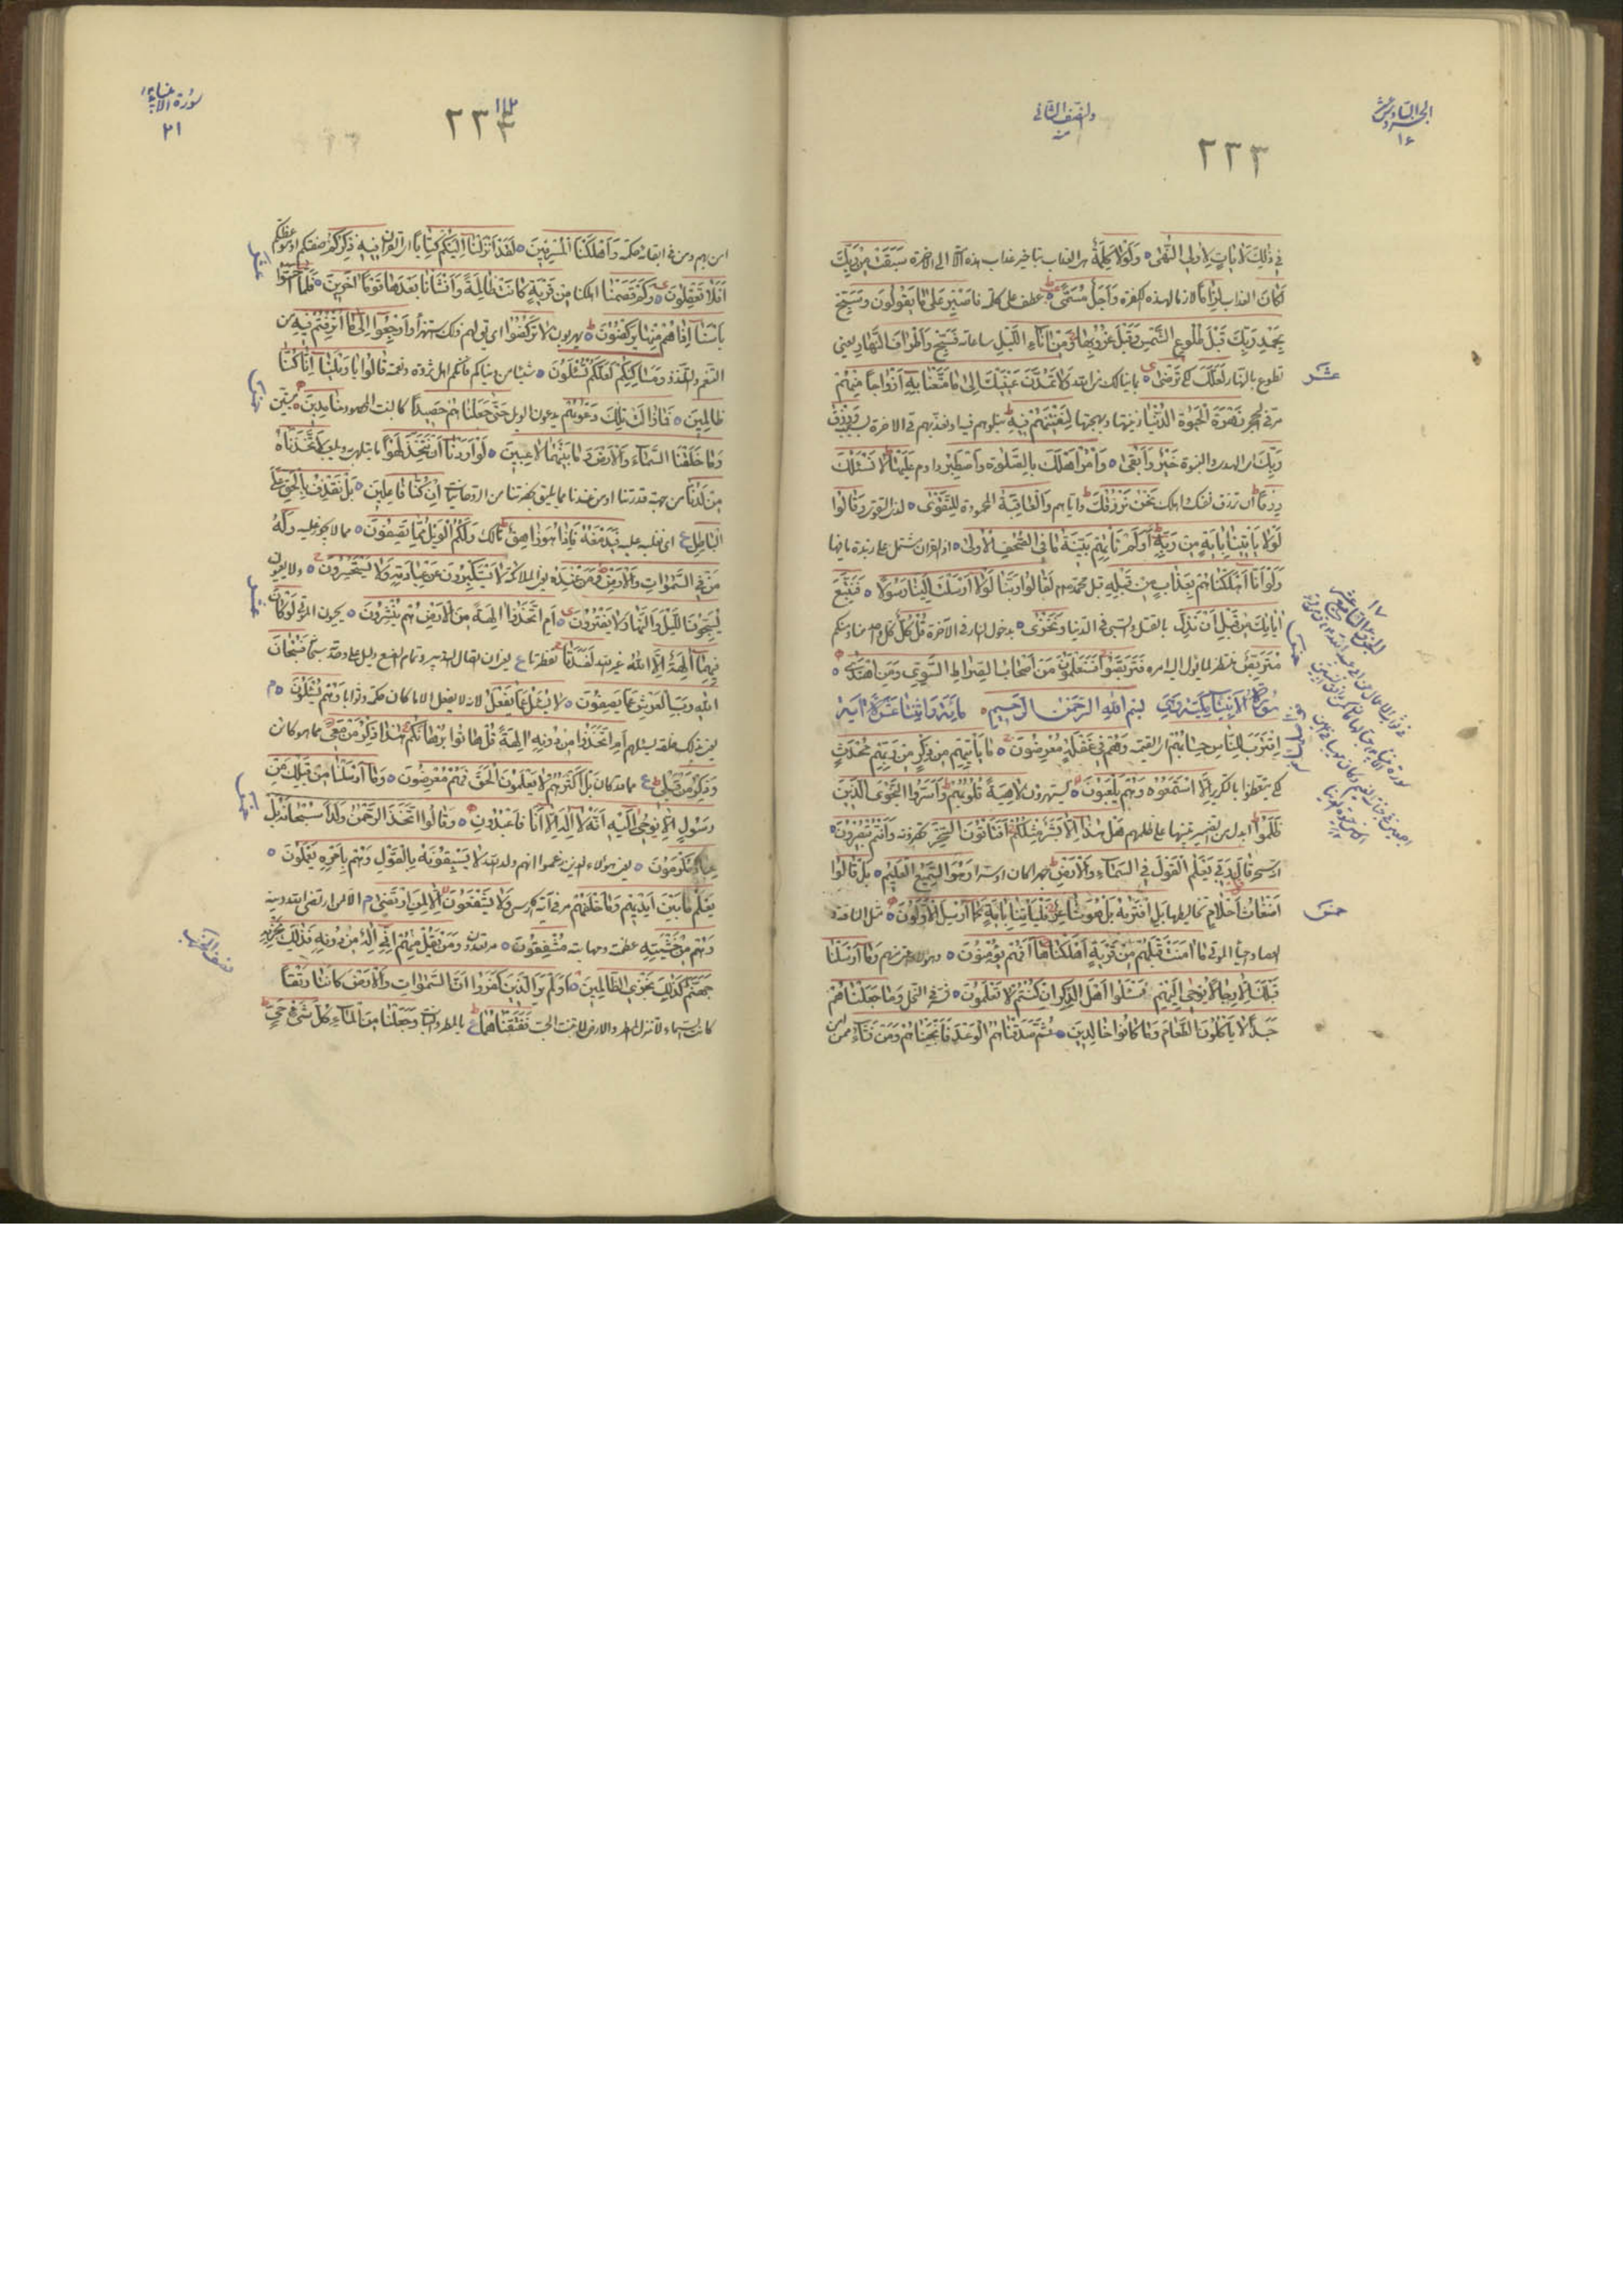 الجزء السادس عشر
١٦
والنصف الثاني
٢٣٣
فى ذٰلِكَ لَاٰيَاتٍ لِاُولِى النُّهٰى وَلَوْلَا كَلِمَةٌ بتاخير عذاب هذه الى الاخرة سَبَقَتْ مِنْ رَبِّكَ
لَكَانَ العذاب لِزَامًا لازما لهذه الكفرة وَاَجَلٌ مُسَمًّى عطف على كلمة فَاصْبِرْ عَلٰى مَا يَقُولُونَ وَسَبِّحْ
بِحَمْدِ رَبِّكَ قَبْلَ طُلُوعِ الشَّمْسِ وَقَبْلَ غُرُوبِهَا وَمِنْ اٰنَآءِ اللَّيْلِ ساعاته فَسَبِّحْ وَاَطْرَافَ النَّهَارِ يعنى
تطوع بالنهار لَعَلَّكَ تَرْضٰى وَلَا تَمُدَّنَّ عَيْنَيْكَ اِلٰى مَا مَتَّعْنَا بِهِ اَزْوَاجًا مِنْهُمْ
عشر
مر فى الحجر زَهْرَةَ الْحَيٰوةِ الدُّنْيَا زينتها وبهجتها لِنَفْتِنَهُمْ فِيهِ نبلوهم فيه او نعذبهم فى الاخرة بسببه وَرِزْقُ
رَبِّكَ من الهدى والنبوة خَيْرٌ وَاَبْقٰى وَأْمُرْ اَهْلَكَ بِالصَّلٰوةِ وَاصْطَبِرْ وداوم عَلَيْهَا لَا نَسْئَلُكَ
رِزْقًا ان ترزق نفسك واهلك نَحْنُ نَرْزُقُكَ واياهم وَالْعَاقِبَةُ المحمودة لِلتَّقْوٰى لذوى التقوى وَقَالُوا
لَوْلَا يَأْتِينَا بِاٰيَةٍ مِنْ رَبِّهِ اَوَلَمْ تَأْتِهِمْ بَيِّنَةُ مَا فِى الصُّحُفِ الْاُولٰى اذ القران مشتمل على زبدة ما فيها
وَلَوْ اَنَّا اَهْلَكْنَاهُمْ بِعَذَابٍ مِنْ قَبْلِهِ قبل محمد لَقَالُوا رَبَّنَا لَوْلَا اَرْسَلْتَ اِلَيْنَا رَسُولًا فَنَتَّبِعَ
اٰيَاتِكَ مِنْ قَبْلِ اَنْ نَذِلَّ بالقتل والسبى فى الدنيا وَنَخْزٰى بدخول النار فى الاخرة قُلْ كُلٌّ كل واحد منا ومنكم
مُتَرَبِّصٌ منتظر لما يؤل اليه امره فَتَرَبَّصُوا فَسَتَعْلَمُونَ مَنْ اَصْحَابُ الصِّرَاطِ السَّوِىِّ وَمَنِ اهْتَدٰى
١٧
سورة الانبياء مكية وهى بسم الله الرحمن الرحيم مائة واثنتا عشرة اية
اِقْتَرَبَ لِلنَّاسِ حِسَابُهُمْ القيمة وَهُمْ فِى غَفْلَةٍ مُعْرِضُونَ مَا يَأْتِيهِمْ مِنْ ذِكْرٍ مِنْ رَبِّهِمْ مُحْدَثٍ
كى يتعظوا بالتكرير اِلَّا اسْتَمَعُوهُ وَهُمْ يَلْعَبُونَ يستهزؤن لَاهِيَةً قُلُوبُهُمْ وَاَسَرُّوا النَّجْوَى الَّذِينَ
ظَلَمُوا ابدل من الضمير تنبيها على ظلمهم هَلْ هٰذَا اِلَّا بَشَرٌ مِثْلُكُمْ اَفَتَأْتُونَ السِّحْرَ تحضرونه وَاَنْتُمْ تُبْصِرُونَ
انه سحر قَالَ رَبِّى يَعْلَمُ الْقَوْلَ فِى السَّمَآءِ وَالْاَرْضِ جهرا كان او سرا وَهُوَ السَّمِيعُ الْعَلِيمُ بَلْ قَالُوا
اَضْغَاثُ اَحْلَامٍ تخاليطها بَلِ افْتَرٰيهُ بَلْ هُوَ شَاعِرٌ فَلْيَأْتِنَا بِاٰيَةٍ كَمَا اُرْسِلَ الْاَوَّلُونَ مثل الناقة و
خمس
العصا واحياء الموتى مَا اٰمَنَتْ قَبْلَهُمْ مِنْ قَرْيَةٍ اَهْلَكْنَاهَا اَفَهُمْ يُؤْمِنُونَ وَمَا اَرْسَلْنَا
قَبْلَكَ اِلَّا رِجَالًا نُوحِى اِلَيْهِمْ فَسْئَلُوا اَهْلَ الذِّكْرِ اِنْ كُنْتُمْ لَا تَعْلَمُونَ مر فى النحل وَمَا جَعَلْنَاهُمْ
جَسَدًا لَا يَأْكُلُونَ الطَّعَامَ وَمَا كَانُوا خَالِدِينَ ثُمَّ صَدَقْنَاهُمُ الْوَعْدَ فَاَنْجَيْنَاهُمْ وَمَنْ نَشَآءُ ممن
سورة الانبياء
٢١
١١٢
٢٣٣
امن بهم ومن فى ابقائه حكمة وَاَهْلَكْنَا الْمُسْرِفِينَ لَقَدْ اَنْزَلْنَا اِلَيْكُمْ كِتَابًا القران فِيهِ ذِكْرُكُمْ صيتكم او موعظتكم
اَفَلَا تَعْقِلُونَ وَكَمْ قَصَمْنَا اهلكنا مِنْ قَرْيَةٍ كَانَتْ ظَالِمَةً وَاَنْشَأْنَا بَعْدَهَا قَوْمًا اٰخَرِينَ فَلَمَّا اَحَسُّوا
بَأْسَنَا اِذَا هُمْ مِنْهَا يَرْكُضُونَ يهربون لَا تَرْكُضُوا اى قيل لهم ذلك استهزاء وَارْجِعُوا اِلٰى مَا اُتْرِفْتُمْ فِيهِ من
التنعم والتلذذ وَمَسَاكِنِكُمْ لَعَلَّكُمْ تُسْئَلُونَ شيئا من دنياكم فانكم اهل ثروة ونعمة قَالُوا يَا وَيْلَنَا اِنَّا كُنَّا
ظَالِمِينَ فَمَا زَالَتْ تِلْكَ دَعْوٰيهُمْ يدعون الويل حَتّٰى جَعَلْنَاهُمْ حَصِيدًا كالنبت المحصود خَامِدِينَ ميتين
وَمَا خَلَقْنَا السَّمَآءَ وَالْاَرْضَ وَمَا بَيْنَهُمَا لَاعِبِينَ لَوْ اَرَدْنَا اَنْ نَتَّخِذَ لَهْوًا ما يتلهى به ويلعب لَاتَّخَذْنَاهُ
مِنْ لَدُنَّا من جهة قدرتنا او من عندنا مما يليق بحضرتنا من الروحانيات اِنْ كُنَّا فَاعِلِينَ بَلْ نَقْذِفُ بِالْحَقِّ عَلَى
الْبَاطِلِ اى نغلبه عليه فَيَدْمَغُهُ فَاِذَا هُوَ زَاهِقٌ هالك وَلَكُمُ الْوَيْلُ مِمَّا تَصِفُونَ مما لا يجوز عليه وَلَهُ
مَنْ فِى السَّمٰوَاتِ وَالْاَرْضِ وَمَنْ عِنْدَهُ الملائكة لَا يَسْتَكْبِرُونَ عَنْ عِبَادَتِهِ وَلَا يَسْتَحْسِرُونَ ولا يعيون
يُسَبِّحُونَ اللَّيْلَ وَالنَّهَارَ لَا يَفْتُرُونَ اَمِ اتَّخَذُوا اٰلِهَةً مِنَ الْاَرْضِ هُمْ يُنْشِرُونَ يحيون الموتى لَوْ كَانَ
فِيهِمَا اٰلِهَةٌ اِلَّا اللّٰهُ غير الله لَفَسَدَتَا تفطرتا فَسُبْحَانَ
اللّٰهِ رَبِّ الْعَرْشِ عَمَّا يَصِفُونَ لَا يُسْئَلُ عَمَّا يَفْعَلُ لانه لا يفعل الا ما كان حكمة وصوابا وَهُمْ يُسْئَلُونَ
اَمِ اتَّخَذُوا مِنْ دُونِهِ اٰلِهَةً قُلْ هَاتُوا بُرْهَانَكُمْ هٰذَا ذِكْرُ مَنْ مَعِىَ مما هو كائن
وَذِكْرُ مَنْ قَبْلِى مما قد كان بَلْ اَكْثَرُهُمْ لَا يَعْلَمُونَ الْحَقَّ فَهُمْ مُعْرِضُونَ وَمَا اَرْسَلْنَا مِنْ قَبْلِكَ مِنْ
رَسُولٍ اِلَّا نُوحِى اِلَيْهِ اَنَّهُ لَا اِلٰهَ اِلَّا اَنَا فَاعْبُدُونِ وَقَالُوا اتَّخَذَ الرَّحْمٰنُ وَلَدًا سُبْحَانَهُ بَلْ
عِبَادٌ مُكْرَمُونَ يعنى هؤلاء الذين زعموا انهم ولد الله لَا يَسْبِقُونَهُ بِالْقَوْلِ وَهُمْ بِاَمْرِهِ يَعْمَلُونَ
يَعْلَمُ مَا بَيْنَ اَيْدِيهِمْ وَمَا خَلْفَهُمْ مر فى اية الكرسى وَلَا يَشْفَعُونَ اِلَّا لِمَنِ ارْتَضٰى الا لمن ارتضى الله دينه
وَهُمْ مِنْ خَشْيَتِهِ عظمته ومهابته مُشْفِقُونَ مرتعدون وَمَنْ يَقُلْ مِنْهُمْ اِنِّى اِلٰهٌ مِنْ دُونِهِ فَذٰلِكَ نَجْزِيهِ
نصف الحزب
جَهَنَّمَ كَذٰلِكَ نَجْزِى الظَّالِمِينَ اَوَلَمْ يَرَ الَّذِينَ كَفَرُوا اَنَّ السَّمٰوَاتِ وَالْاَرْضَ كَانَتَا رَتْقًا
كانت السماء لا تنزل المطر والارض لا تنبت الحب فَفَتَقْنَاهُمَا بالمطر والنبات وَجَعَلْنَا مِنَ الْمَآءِ كُلَّ شَىْءٍ حَىٍّ